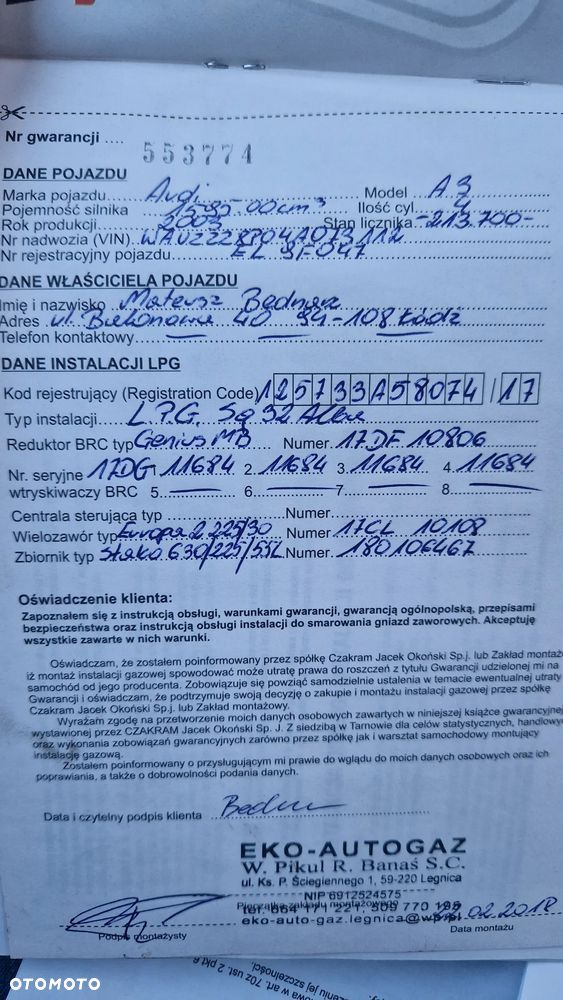 Nr gwarancji .... 553774
DANE POJAZDU
Marka pojazdu... Audi Model A3
Pojemność silnika 1595-00cm³ Ilość cyl. 4
Rok produkcji 2003 Stan licznika -213.700-
Nr nadwozia (VIN)
Nr rejestracyjny pojazdu EL 9F047
DANE WŁAŚCICIELA POJAZDU
Imię i nazwisko Mateusz Bednarz
Adres ul. 40 94-108 Łódź
Telefon kontaktowy
DANE INSTALACJI LPG
Kod rejestrujący (Registration Code) 125733A58074/17
Typ instalacji LPG. Sq 32 Alba
Reduktor BRC typ Genius MB Numer 17DF 10806
Nr. seryjne 17DG 11684 2. 11684 3. 11684 4. 11684
wtryskiwaczy BRC 5. 6. 7. 8.
Centrala sterująca typ Numer
Wielozawór typ Europa 2 225/30 Numer 17CL 10108
Zbiornik typ Stako 630/225/55L Numer 180106467
Oświadczenie klienta:
Zapoznałem się z instrukcją obsługi, warunkami gwarancji, gwarancją ogólnopolską, przepisami
bezpieczeństwa oraz instrukcją obsługi instalacji do smarowania gniazd zaworowych. Akceptuję
wszystkie zawarte w nich warunki.
Oświadczam, że zostałem poinformowany przez spółkę Czakram Jacek Okoński Sp.j. lub Zakład montażo
iż montaż instalacji gazowej spowodować może utratę prawa do roszczeń z tytułu Gwarancji udzielonej mi na
samochód od jego producenta. Zobowiązuje się powziąć samodzielnie ustalenia w temacie ewentualnej utraty
Gwarancji i oświadczam, że podtrzymuje swoją decyzję o zakupie i montażu instalacji gazowej przez spółkę
Czakram Jacek Okoński Sp.j. lub Zakład montażowy.
Wyrażam zgodę na przetworzenie moich danych osobowych zawartych w niniejszej książce gwarancyjnej
wystawionej przez CZAKRAM Jacek Okoński Sp. J. Z siedzibą w Tarnowie dla celów statystycznych, handlowy
oraz wykonania zobowiązań gwarancyjnych zarówno przez spółkę jak i warsztat samochodowy montujący
instalację gazową.
Zostałem poinformowany o przysługującym mi prawie do wglądu do moich danych osobowych oraz ich
poprawiania, a także o dobrowolności podania danych.
Data i czytelny podpis klienta
EKO-AUTOGAZ
W. Pikul R. Banaś S.C.
ul. Ks. P. Ściegiennego 1, 59-220 Legnica
NIP 6912524575
Pieczątka zakładu montażowego
tel. 664 171 221, 509 770 196
eko-auto-gaz.legnica@wp.pl 02.2018
Podpis montażysty Data montażu
OTOMOTO